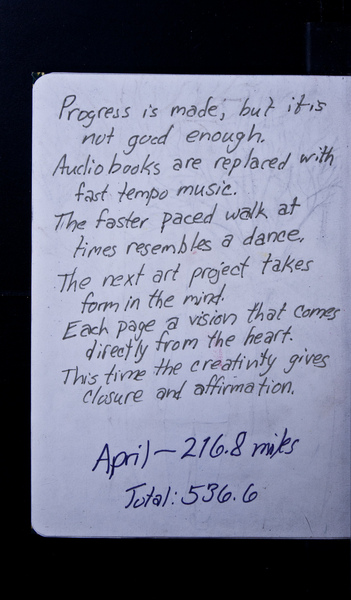 Progress is made, but it is
not good enough.
Audiobooks are replaced with
fast tempo music.
The faster paced walk at
times resembles a dance.
The next art project takes
form in the mind.
Each page a vision that comes
directly from the heart.
This time the creativity gives
closure and affirmation.
April - 216.8 miles
Total: 536.6